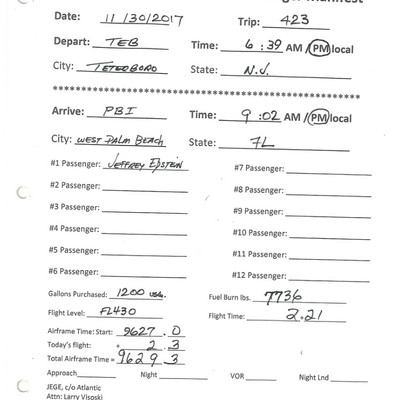 Manifest
Date: 11/30/2017 Trip: 423
Depart: TEB Time: 6:39 AM / PM local
City: TETERBORO State: N.J.
********************************************
Arrive: PBI Time: 9:02 AM / PM local
City: WEST PALM BEACH State: FL
#1 Passenger: JEFFREY EPSTEIN #7 Passenger:
#2 Passenger: #8 Passenger:
#3 Passenger: #9 Passenger:
#4 Passenger: #10 Passenger:
#5 Passenger: #11 Passenger:
#6 Passenger: #12 Passenger:
Gallons Purchased: 1200 Fuel Burn lbs. 7736
Flight Level: FL430 Flight Time: 2.21
Airframe Time: Start: 9627.0
Today's flight: + 2.3
Total Airframe Time = 9629.3
Approach Night VOR Night Lnd
JEGE, c/o Atlantic
Attn: Larry Visoski